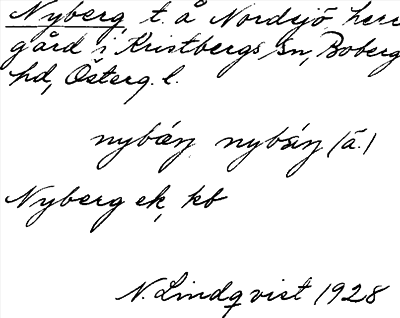 Nyberg, t. å Nordsjö herr
gård i Kristbergs sn, Boberg
hd, Österg. l.
nybærj nybærj (ä.)
Nyberg ek, kb
N. Lindqvist 1928